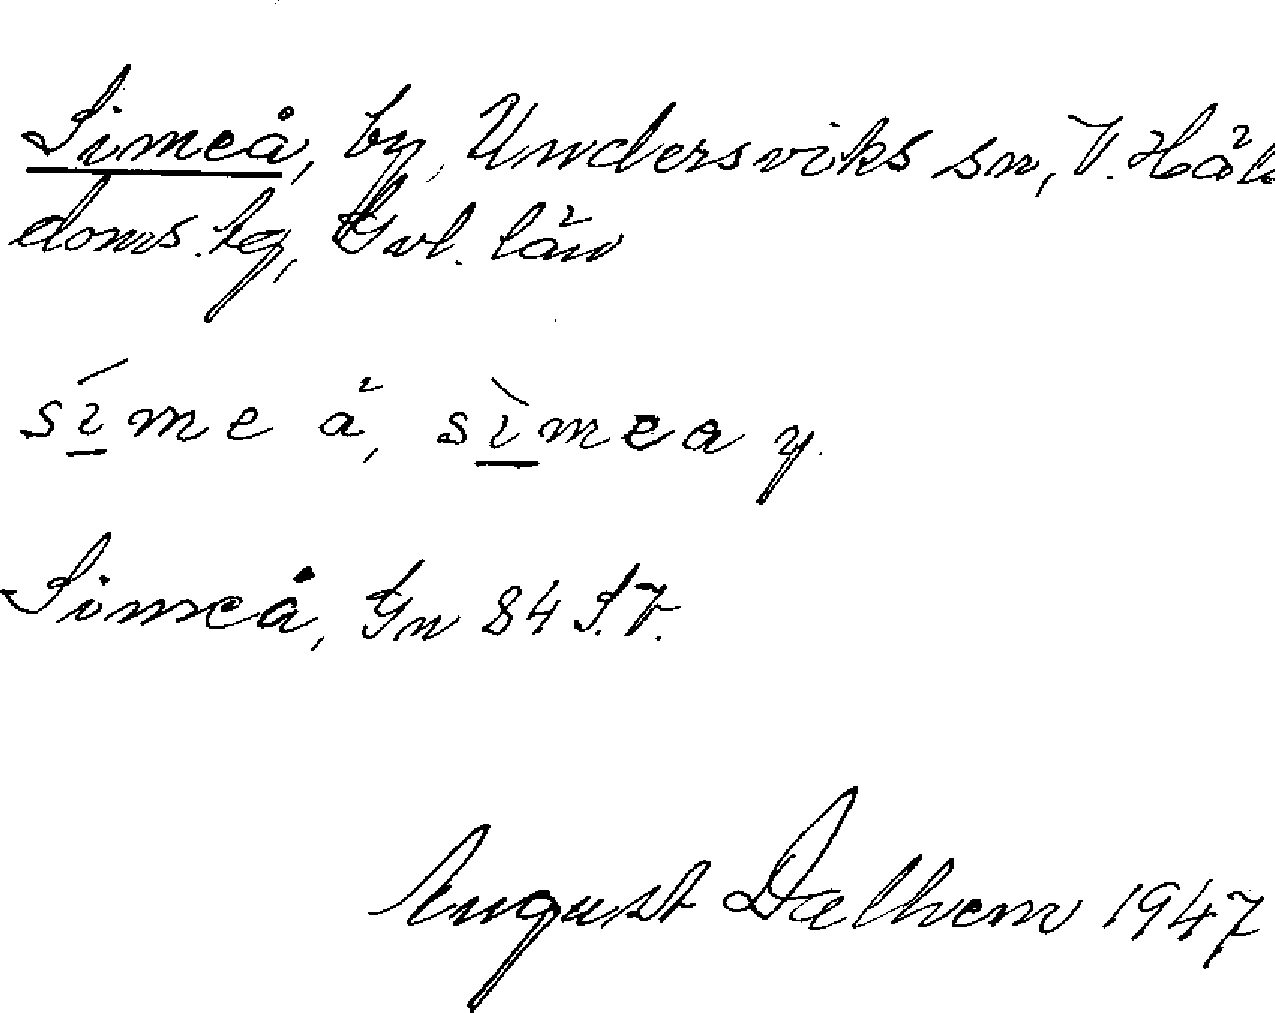 Simeå, by, Undersviks sn, V. Häls
doms. hg, Gvl. län
síme å, sìmea y.
Simeå, Gn 84 S.V.
August Dalhem 1947